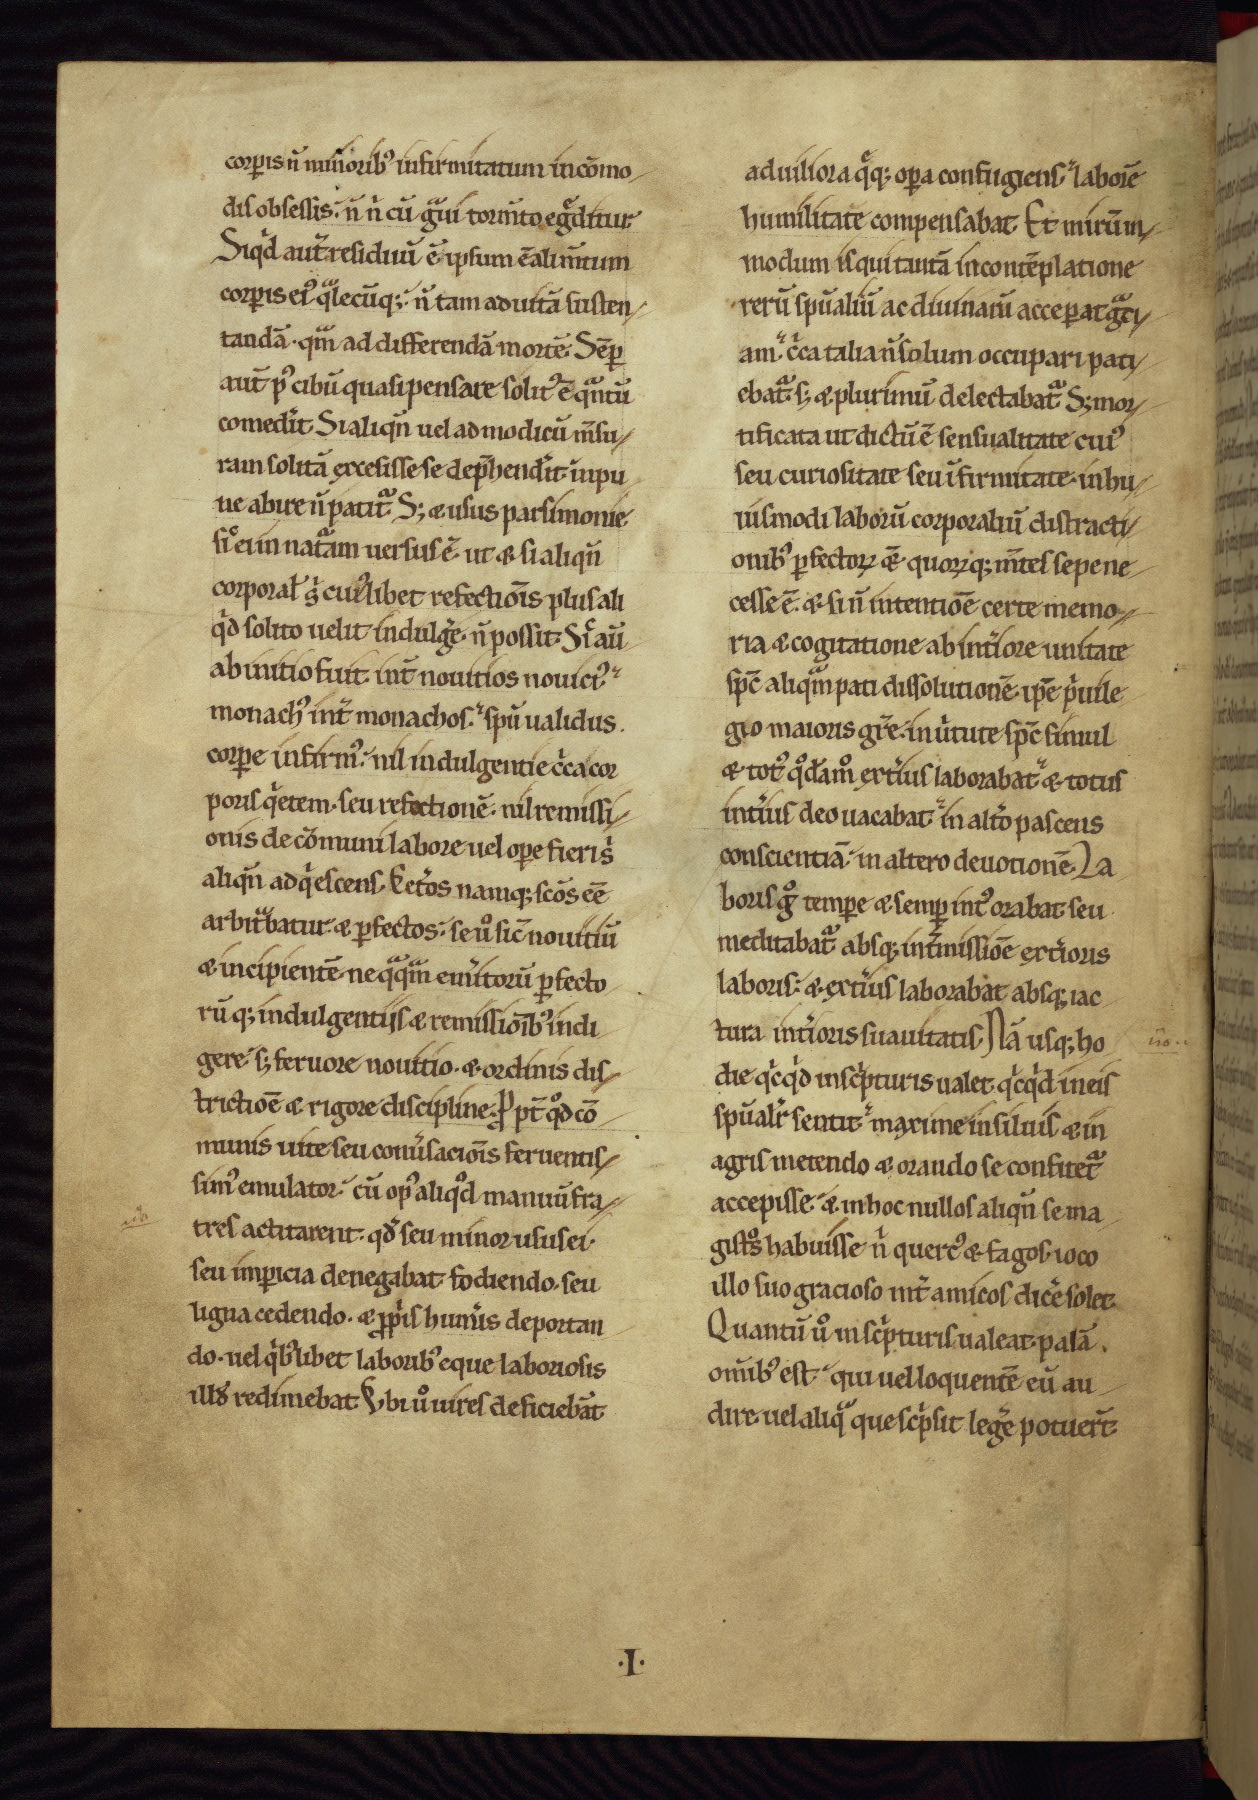 corꝑis n̄ minorib᷒ infirmitatum incōmo
dis obsessis. n̄ n̍ cū gᷓui torm̄to egᷓditur
Siqͥd aut̄ residuū ē. ipsum ē alim̄tum
corꝑis ei᷒ qᷓlecūq; n̄ tam ad uitā susten
tandā. qᷓm ad differendā mortē. Sēꝑ
aut̄ p᷒ cibū quasi pensare solit᷒ ē qᷓntū
comed̍it. Si aliqn̄ uel ad modicū m̄su
ram solitā excessisse se dep̄hend̍it. inpu
ne abire n̄ patit᷑. S; & usus parsimonie
sic̊ ei in natᷓam uersus ē. ut & si aliqn̄
corporal̓ s̍ cui᷒libet refectiōis plus ali
qͥd solito uelit indulg̍e. n̄ possit. Sic̍ au
ab initio fuit int̄ nouitios nouici᷒
monach᷒ int̄ monachos. spū ualidus.
corꝑe infirm᷒. nil indulgentie cͥca cor
poris qͥetem. seu refectionē. nil remissi
onis de cōmuni labore uel oꝑe fieri s̍
aliqn̄ adqͥescens. Cet̍os namq; sc̄os eē
arbitᷓbatur & ꝑfectos. se ů sic̄ nouitiū
& incipientē ne qᷓqᷓm em̍itorū ꝑfecto
rū q; indulgentijs & remissiōib᷒ indi
gere. s; feruore nouitio. & ordinis dis
trictiōe & rigore discipline. Ꝓpt̄ qͦd cō
munis uite seu conu̍saciōis feruentis
sim᷒ emulator. cū op᷒ aliqͦd manuū fra
tres actitarent. qͦd seu minor usus ei.
seu imꝑicia denegabat. fodiendo. seu
ligna cedendo. & ꝓpͥis hum̍is deportan
do. uel qͥb᷒libet laborib᷒ eque laboriosis
illud redimebat. Vbi ů uires deficiebāt
ad uiliora qᷓq; oꝑa confugiens. laborē
humilitate compensabat. Et mirum in
modum is qui tantā in contēplatione
rerū spūaliū ac diuinarū acceperat gᷓti
am. cͥca talia n̄ solum occupari pati
ebat᷑. s; & plurimū delectabat᷑. S; mor
tificata ut dictū ē sensualitate cui᷒
seu curiositate seu īfirmitate. in hu
iusmodi laborū corporaliū distracti
onib᷒ ꝑfectoꝝ & quoꝝq; m̄tes sepe ne
cesse ē. & si n̄ intentiōe certe memo
ria & cogitatione ab int̍iore unitate
spc̄ aliqᷓm pati dissolutionē. ip̄e pͥuile
gio maioris gr̄e. in uͥtute spc̄ simul
& tot᷒ qͦdamͦ ext̍ius laborabat. & totus
int̍ius deo uacabat. in alt̍o pascens
conscientiā. in altero deuotionē. La
boris gͦ tempore & semꝑ int᷒ orabat seu
meditabat᷑ absq; int̄missiōe ext̍ioris
laboris. & ext̍ius laborabat absq; iac
tura int̍ioris suauitatis. Nā usq; ho
die qͥcqͥd in scͥpturis ualet. qͥcqͥd in eis
spūalit̄ sentit. maxime in siluis & in
agris metendo & orando se confitet᷑
accepisse. & in hoc nullos aliqn̄ se ma
gist̊s habuisse n̍ querc᷒ & fagos. ioco
illo suo gracioso int̄ amicos dic̍e solet.
Quantū ů in scͥpturis ualeat. palā.
omīb᷒ est. qui uel loquentē eū au
dire. uel aliqᷓ que scͥpsit leg̍e potuer̄t.
·I·